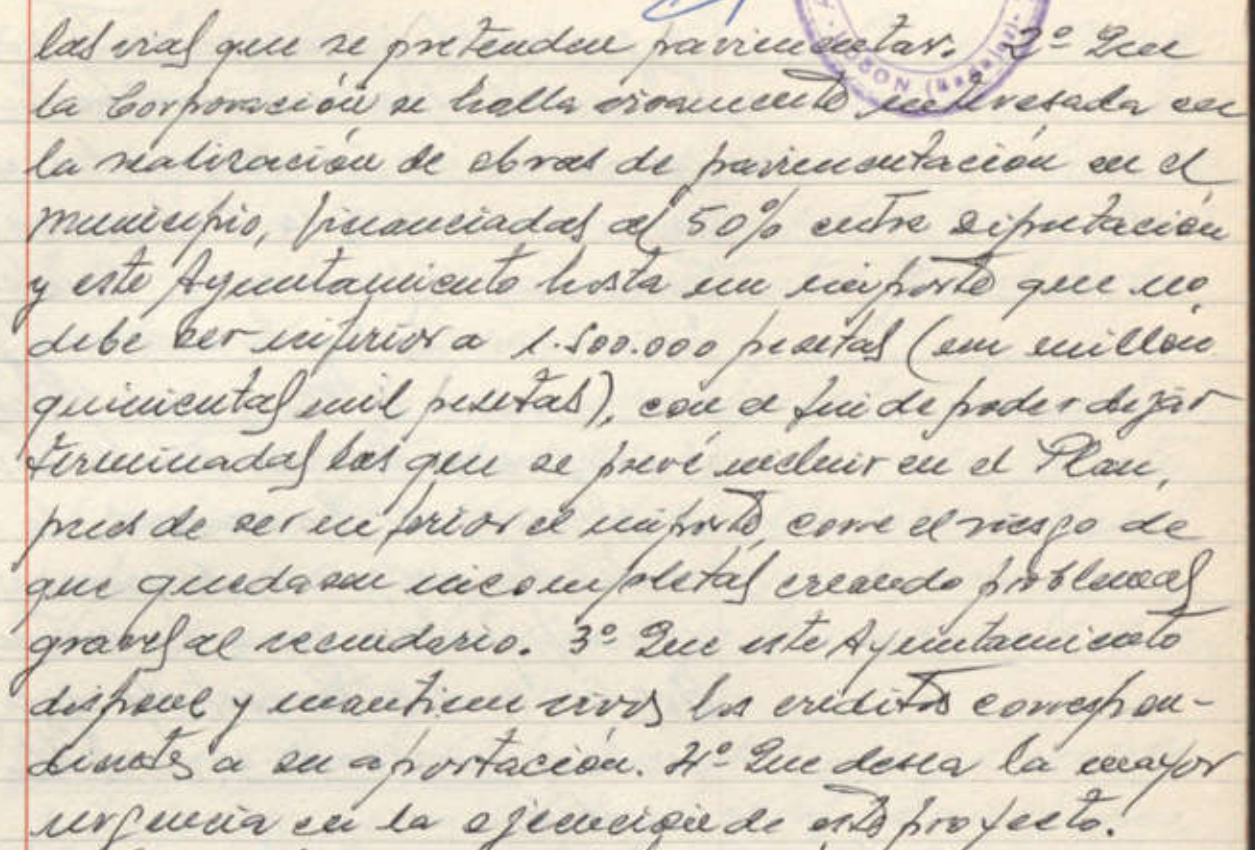 las vias que se pretenden pavimentar. 2º Que
la Corporación se halla vivamente interesada en
la realización de obras de pavimentación en el
municipio, financiadas al 50% entre Diputación
y este Ayuntamiento hasta un importe que no
debe ser inferior a 1.500.000 pesetas (un millón
quinientas mil pesetas), con el fin de poder dejar
terminadas las que se prevé incluir en el Plan,
pues de ser inferior el importe, corre el riesgo de
que quedasen incompletas creando problemas
graves al vecindario. 3º Que este Ayuntamiento
dispone y mantiene vivos los créditos correspon-
dientes a su aportación. 4º Que desea la mayor
urgencia en la ejecución de este proyecto.